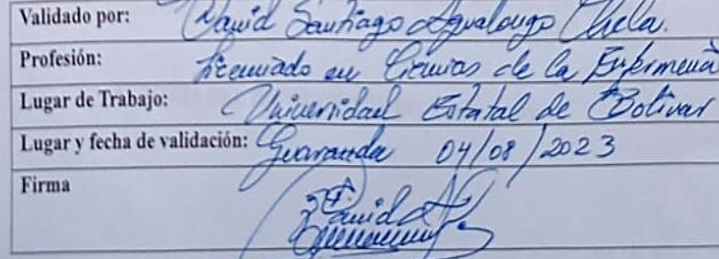 Validado por: David Santiago Agualongo Chela.
Profesión: Licenciado en Ciencias de la Enfermería
Lugar de Trabajo: Universidad Estatal de Bolívar
Lugar y fecha de validación: Guaranda 04/08/2023
Firma David